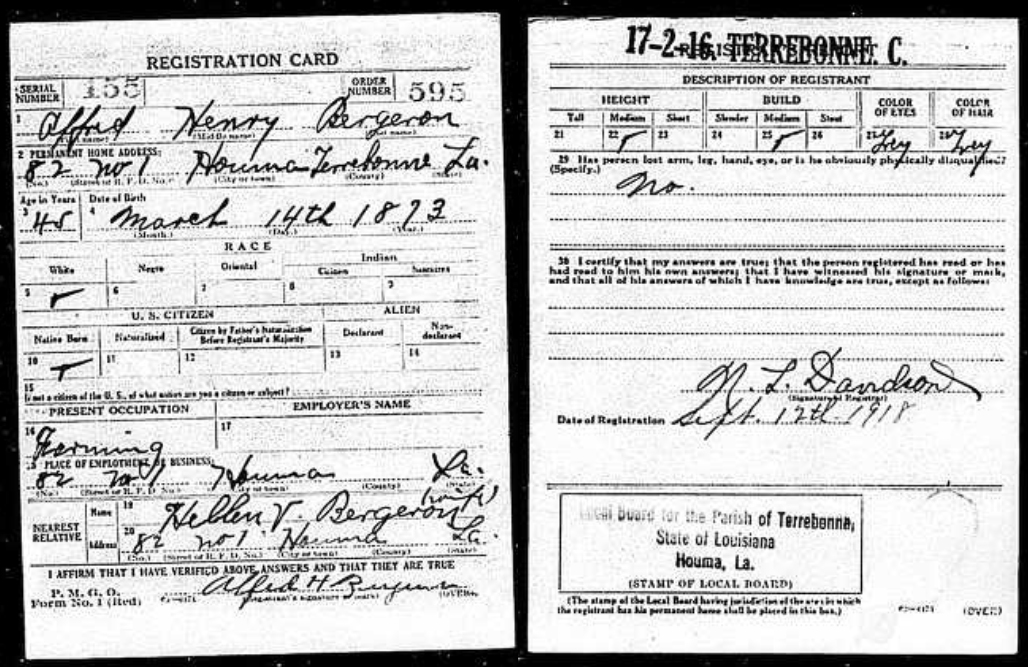 REGISTRATION CARD
SERIAL NUMBER 155 ORDER NUMBER 595
1 Alfred Henry Bergeron
(First name) (Middle name) (Last name)
2 PERMANENT HOME ADDRESS:
82 no 1 Houma Terrebonne La.
(No.) (Street or R. F. D. No.) (City or town) (County) (State)
Age in Years Date of Birth
3 45 4 March 14th 1873
(Month.) (Day.) (Year.)
RACE
White Negro Oriental Indian
Citizen Noncitizen
5 6 7 8 9
U. S. CITIZEN ALIEN
Native Born Naturalized Citizen by Father's Naturalization Before Registrant's Majority Declarant Non-declarant
10 11 12 13 14
15
If not a citizen of the U. S., of what nation are you a citizen or subject?
PRESENT OCCUPATION EMPLOYER'S NAME
16 Farming 17
18 PLACE OF EMPLOYMENT OR BUSINESS:
82 no 1 Houma La.
(No.) (Street or R. F. D. No.) (City or town) (County) (State)
NEAREST RELATIVE
Name 19 Hellen V. Bergeron (wife)
Address 20 82 no 1 Houma La.
(No.) (Street or R. F. D. No.) (City or town) (County) (State)
I AFFIRM THAT I HAVE VERIFIED ABOVE ANSWERS AND THAT THEY ARE TRUE
P. M. G. O.
Form No. 1 (Red) Alfred H Bergeron
(Registrant's signature or mark) (OVER)
17-2-16. TERREBONNE. C.
REGISTRAR'S REPORT
DESCRIPTION OF REGISTRANT
HEIGHT BUILD COLOR OF EYES COLOR OF HAIR
Tall Medium Short Slender Medium Stout
21 22 23 24 25 26 27 Grey 28 Grey
29 Has person lost arm, leg, hand, eye, or is he obviously physically disqualified?
(Specify.)
No.
30 I certify that my answers are true; that the person registered has read or has
had read to him his own answers; that I have witnessed his signature or mark,
and that all of his answers of which I have knowledge are true, except as follows:
N. L. Davidson
(Signature of Registrar)
Date of Registration Sept. 12th 1918
Local Board for the Parish of Terrebonne,
State of Louisiana
Houma, La.
(STAMP OF LOCAL BOARD)
(The stamp of the Local Board having jurisdiction of the area in which
the registrant has his permanent home shall be placed in this box.)
(OVER)